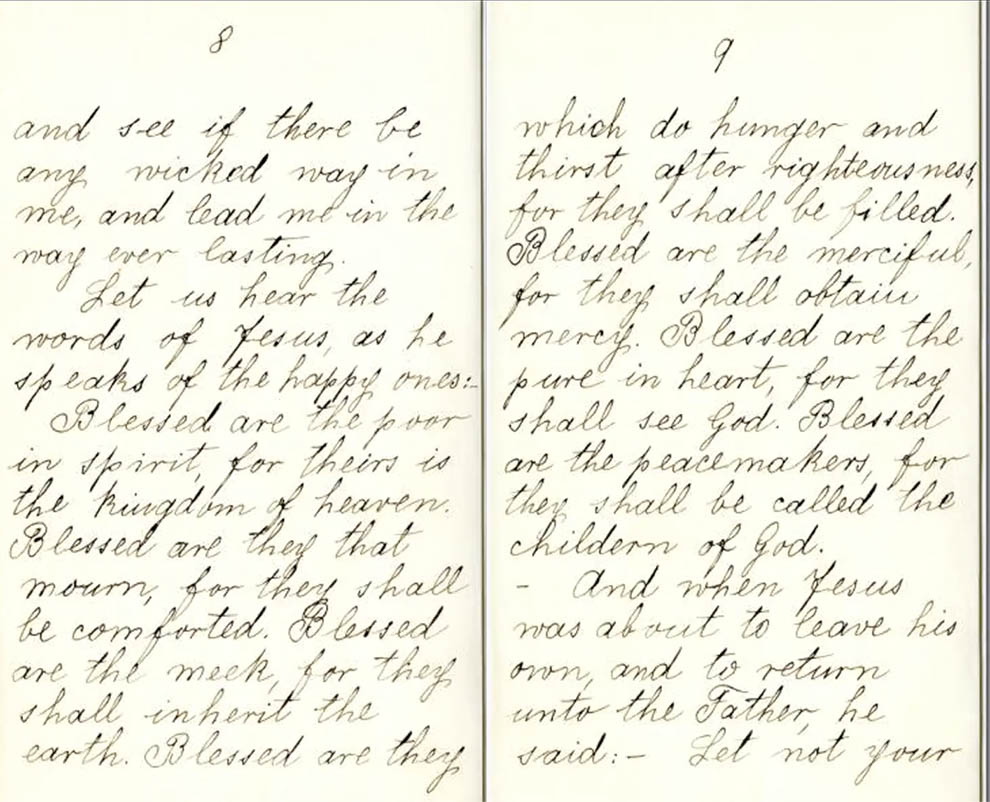 8
and see if there be
any wicked way in
me, and lead me in the
way ever lasting.
Let us hear the
words of Jesus, as he
speaks of the happy ones:-
Blessed are the poor
in spirit, for theirs is
the kingdom of heaven.
Blessed are they that
mourn, for they shall
be comforted. Blessed
are the meek, for they
shall inherit the
earth. Blessed are they
9
which do hunger and
thirst after righteousness,
for they shall be filled.
Blessed are the merciful,
for they shall obtain
mercy. Blessed are the
pure in heart, for they
shall see God. Blessed
are the peacemakers, for
they shall be called the
childern of God.
- And when Jesus
was about to leave his
own, and to return
unto the Father, he
said:- Let not your